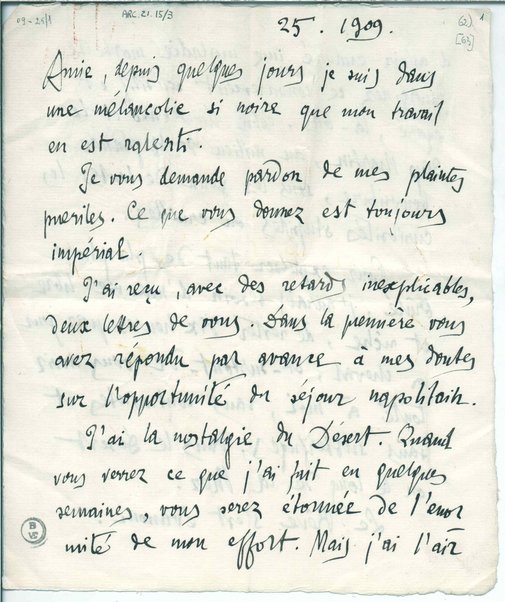 09-25/1
ARC.21.15/3
(2)
1
[63]
25.1909.
Amie, depuis quelques jours je suis dans
une mélancolie si noire que mon travail
en est ralenti.
Je vous demande pardon de mes plaintes
pueriles. Ce que vous donnez est toujours
impérial
J'ai reçu, avec des retards inexplicables,
deux lettres de vous. Dans la première vous
avez répondu par avance à mes doutes
sur l'opportunité du séjour napolitain.
J'ai la nostalgie du Désert. Quand
vous verrez ce que j'ai fait en quelques
semaines, vous serez étonnée de l'enor
mité de mon effort. Mais j'ai l'air